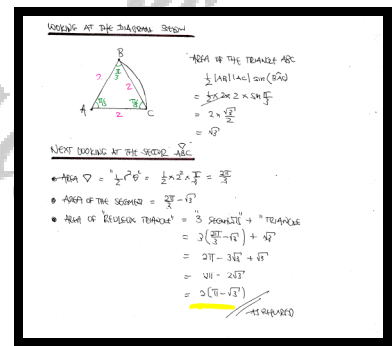 LOOKING AT THE DIAGRAM BELOW
B
π/3
2
2
A
π/3
π/3
C
2
AREA OF THE TRIANGLE ABC
½ |AB||AC| sin (BÂC)
= ½ × 2 × 2 × sin π/3
= 2 × √3/2
= √3
NEXT LOOKING AT THE SECTOR ABC
• AREA = "½r²θ" = ½ × 2² × π/3 = 2π/3
• AREA OF THE SEGMENT = 2π/3 - √3
• AREA OF "REULEUX TRIANGLE" = "3 SEGMENTS" + "TRIANGLE"
= 3(2π/3 - √3) + √3
= 2π - 3√3 + √3
= 2π - 2√3
= 2(π - √3)
AS REQUIRED